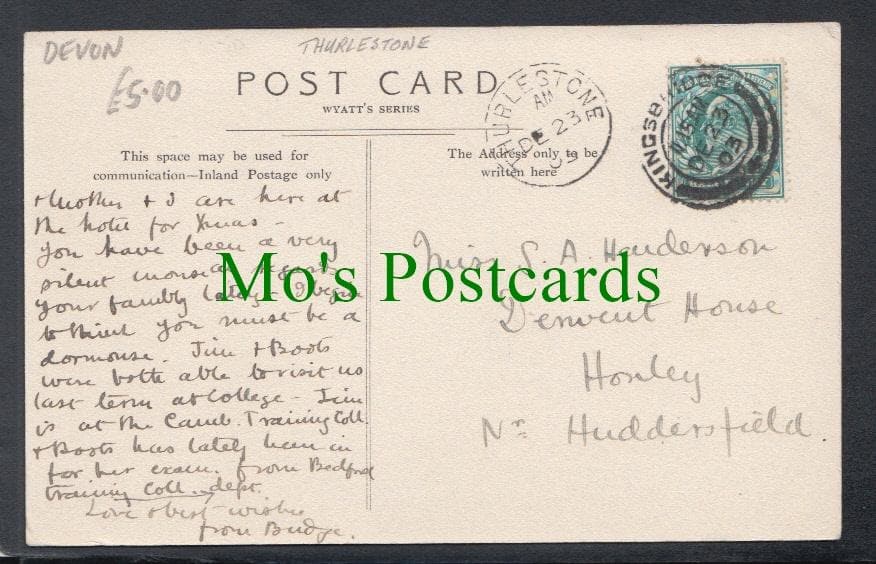 DEVON
THURLESTONE
£5.00
POST CARD
WYATT'S SERIES
THURLESTONE
AM
DE 23
03
KINGSBRIDGE
DE 23
03
This space may be used for
communication—Inland Postage only
The Address only to be
written here
+ Mother + I are here at
the hotel for Xmas -
you have been a very
silent
your family lately - I begin
to think you must be a
dormouse. Jim + Boots
were both able to visit us
last term at College - Jim
is at the Camb. Training Coll.
+ Boots has lately been in
for her exam. from Bedford
training Coll. dept.
Love & best wishes
from Budge.
Miss S. A. Henderson
Derwent House
Honley
Nr Huddersfield.
Mo's Postcards